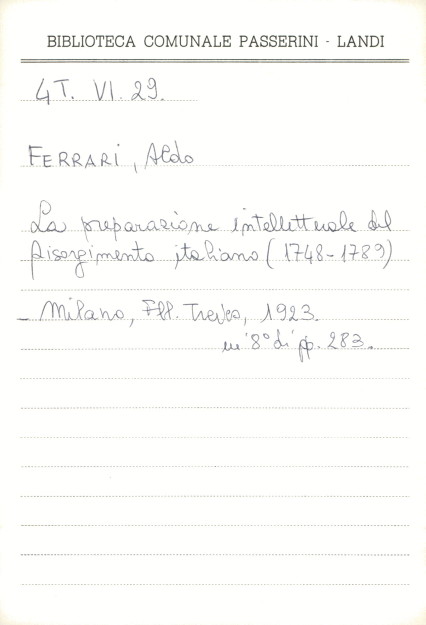 BIBLIOTECA COMUNALE PASSERINI - LANDI
4T. VI. 29.
FERRARI, Aldo
La preparazione intellettuale del
Risorgimento italiano (1748-1789)
- Milano, Fll. Treves, 1923.
in 8° di pp. 283.